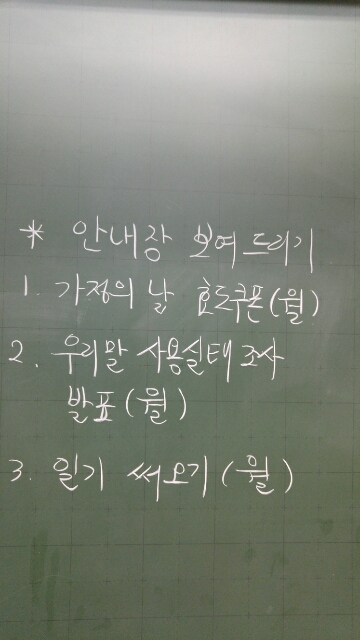 * 안내장 보여 드리기
1. 가정의 날 효도쿠폰(월)
2. 우리말 사용실태 조사
발표(월)
3. 일기 써오기(월)